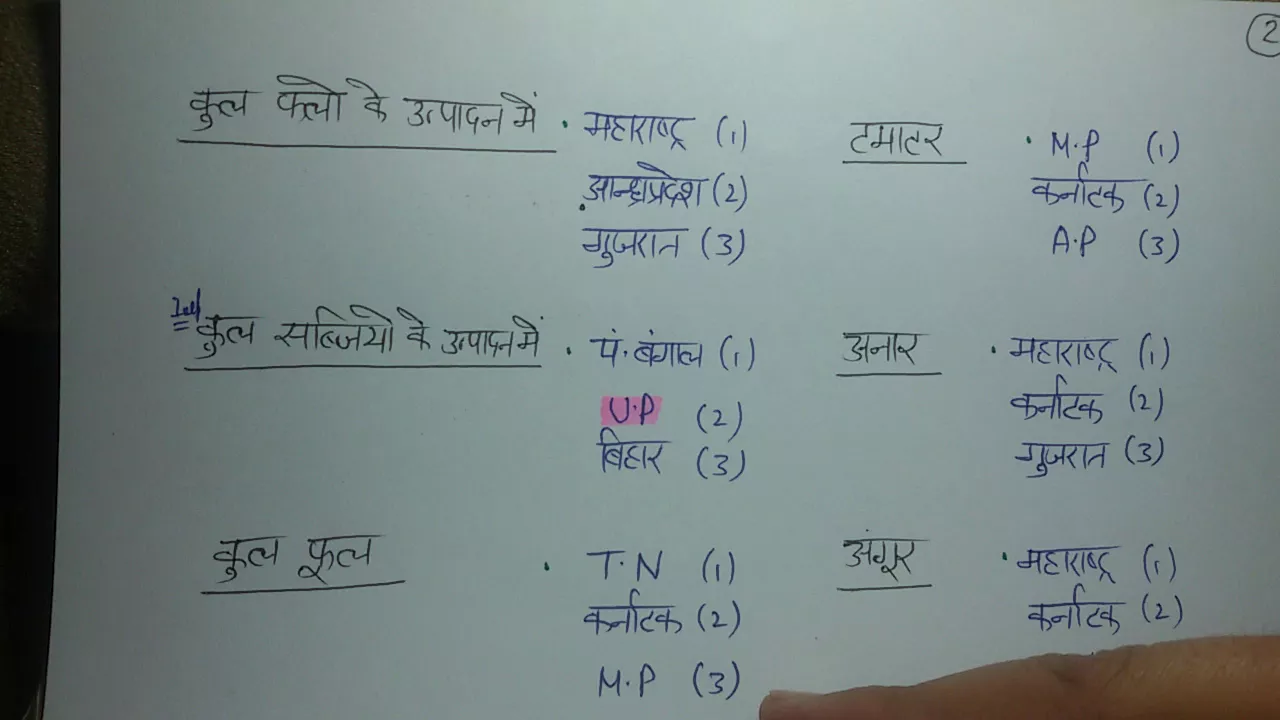 2
कुल फलो के उत्पादन में . महाराष्ट्र (1)
आन्ध्रप्रदेश (2)
गुजरात (3)
कुल सब्जियो के उत्पादन में . पं. बंगाल (1)
U.P (2)
बिहार (3)
कुल फूल . T.N (1)
कर्नाटक (2)
M.P (3)
टमाटर . M.P (1)
कर्नाटक (2)
A.P (3)
अनार . महाराष्ट्र (1)
कर्नाटक (2)
गुजरात (3)
अंगूर . महाराष्ट्र (1)
कर्नाटक (2)